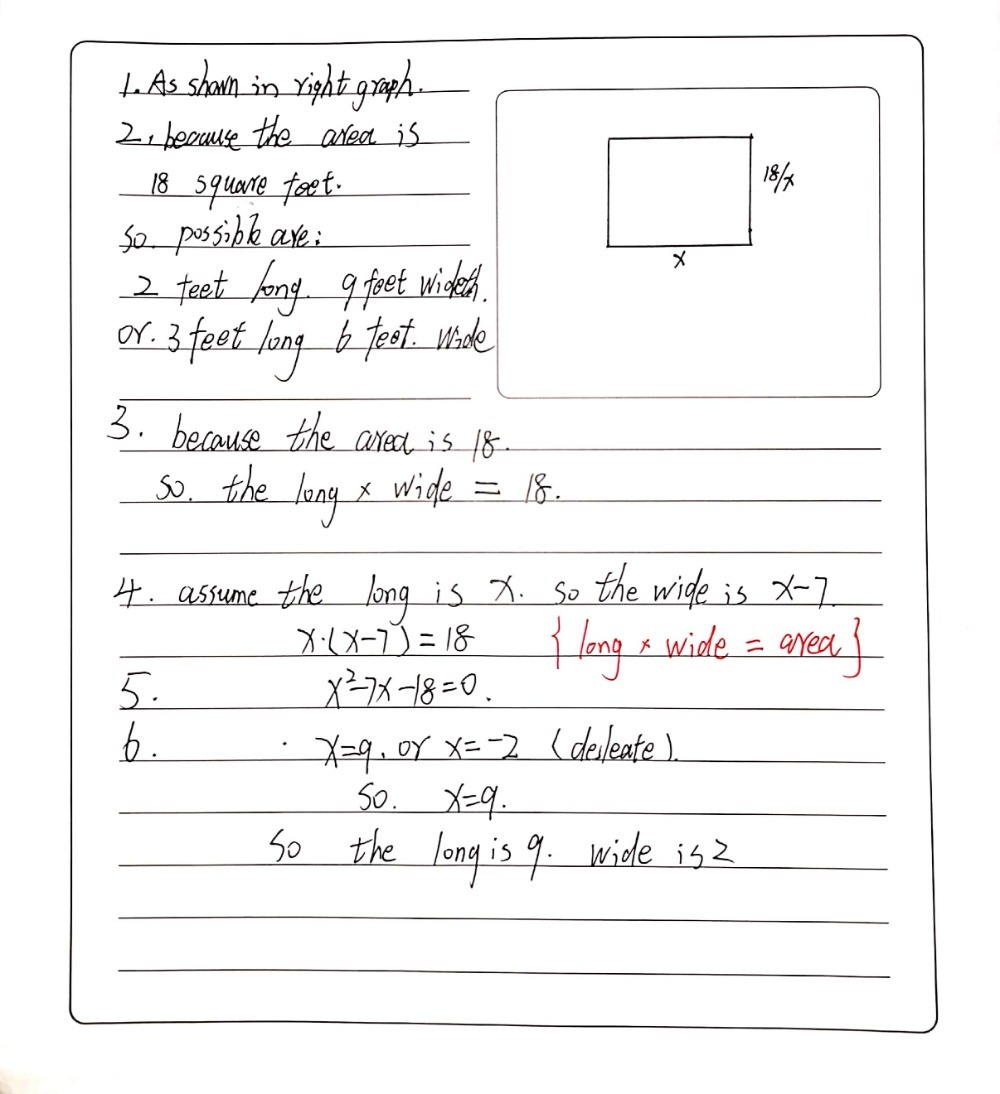 1. As shown in right graph.
2, because the area is
18 square feet.
so. possible are:
2 feet long. 9 feet wideth.
or. 3 feet long 6 feet. wide
18/x
x
3. because the area is 18.
so. the long × wide = 18.
4. assume the long is x. so the wide is x-7
x·(x-7)=18 { long × wide = area }
5. x²-7x-18=0.
6. x=9. or x=-2 (deleate).
So. x=9.
So the long is 9. wide is 2